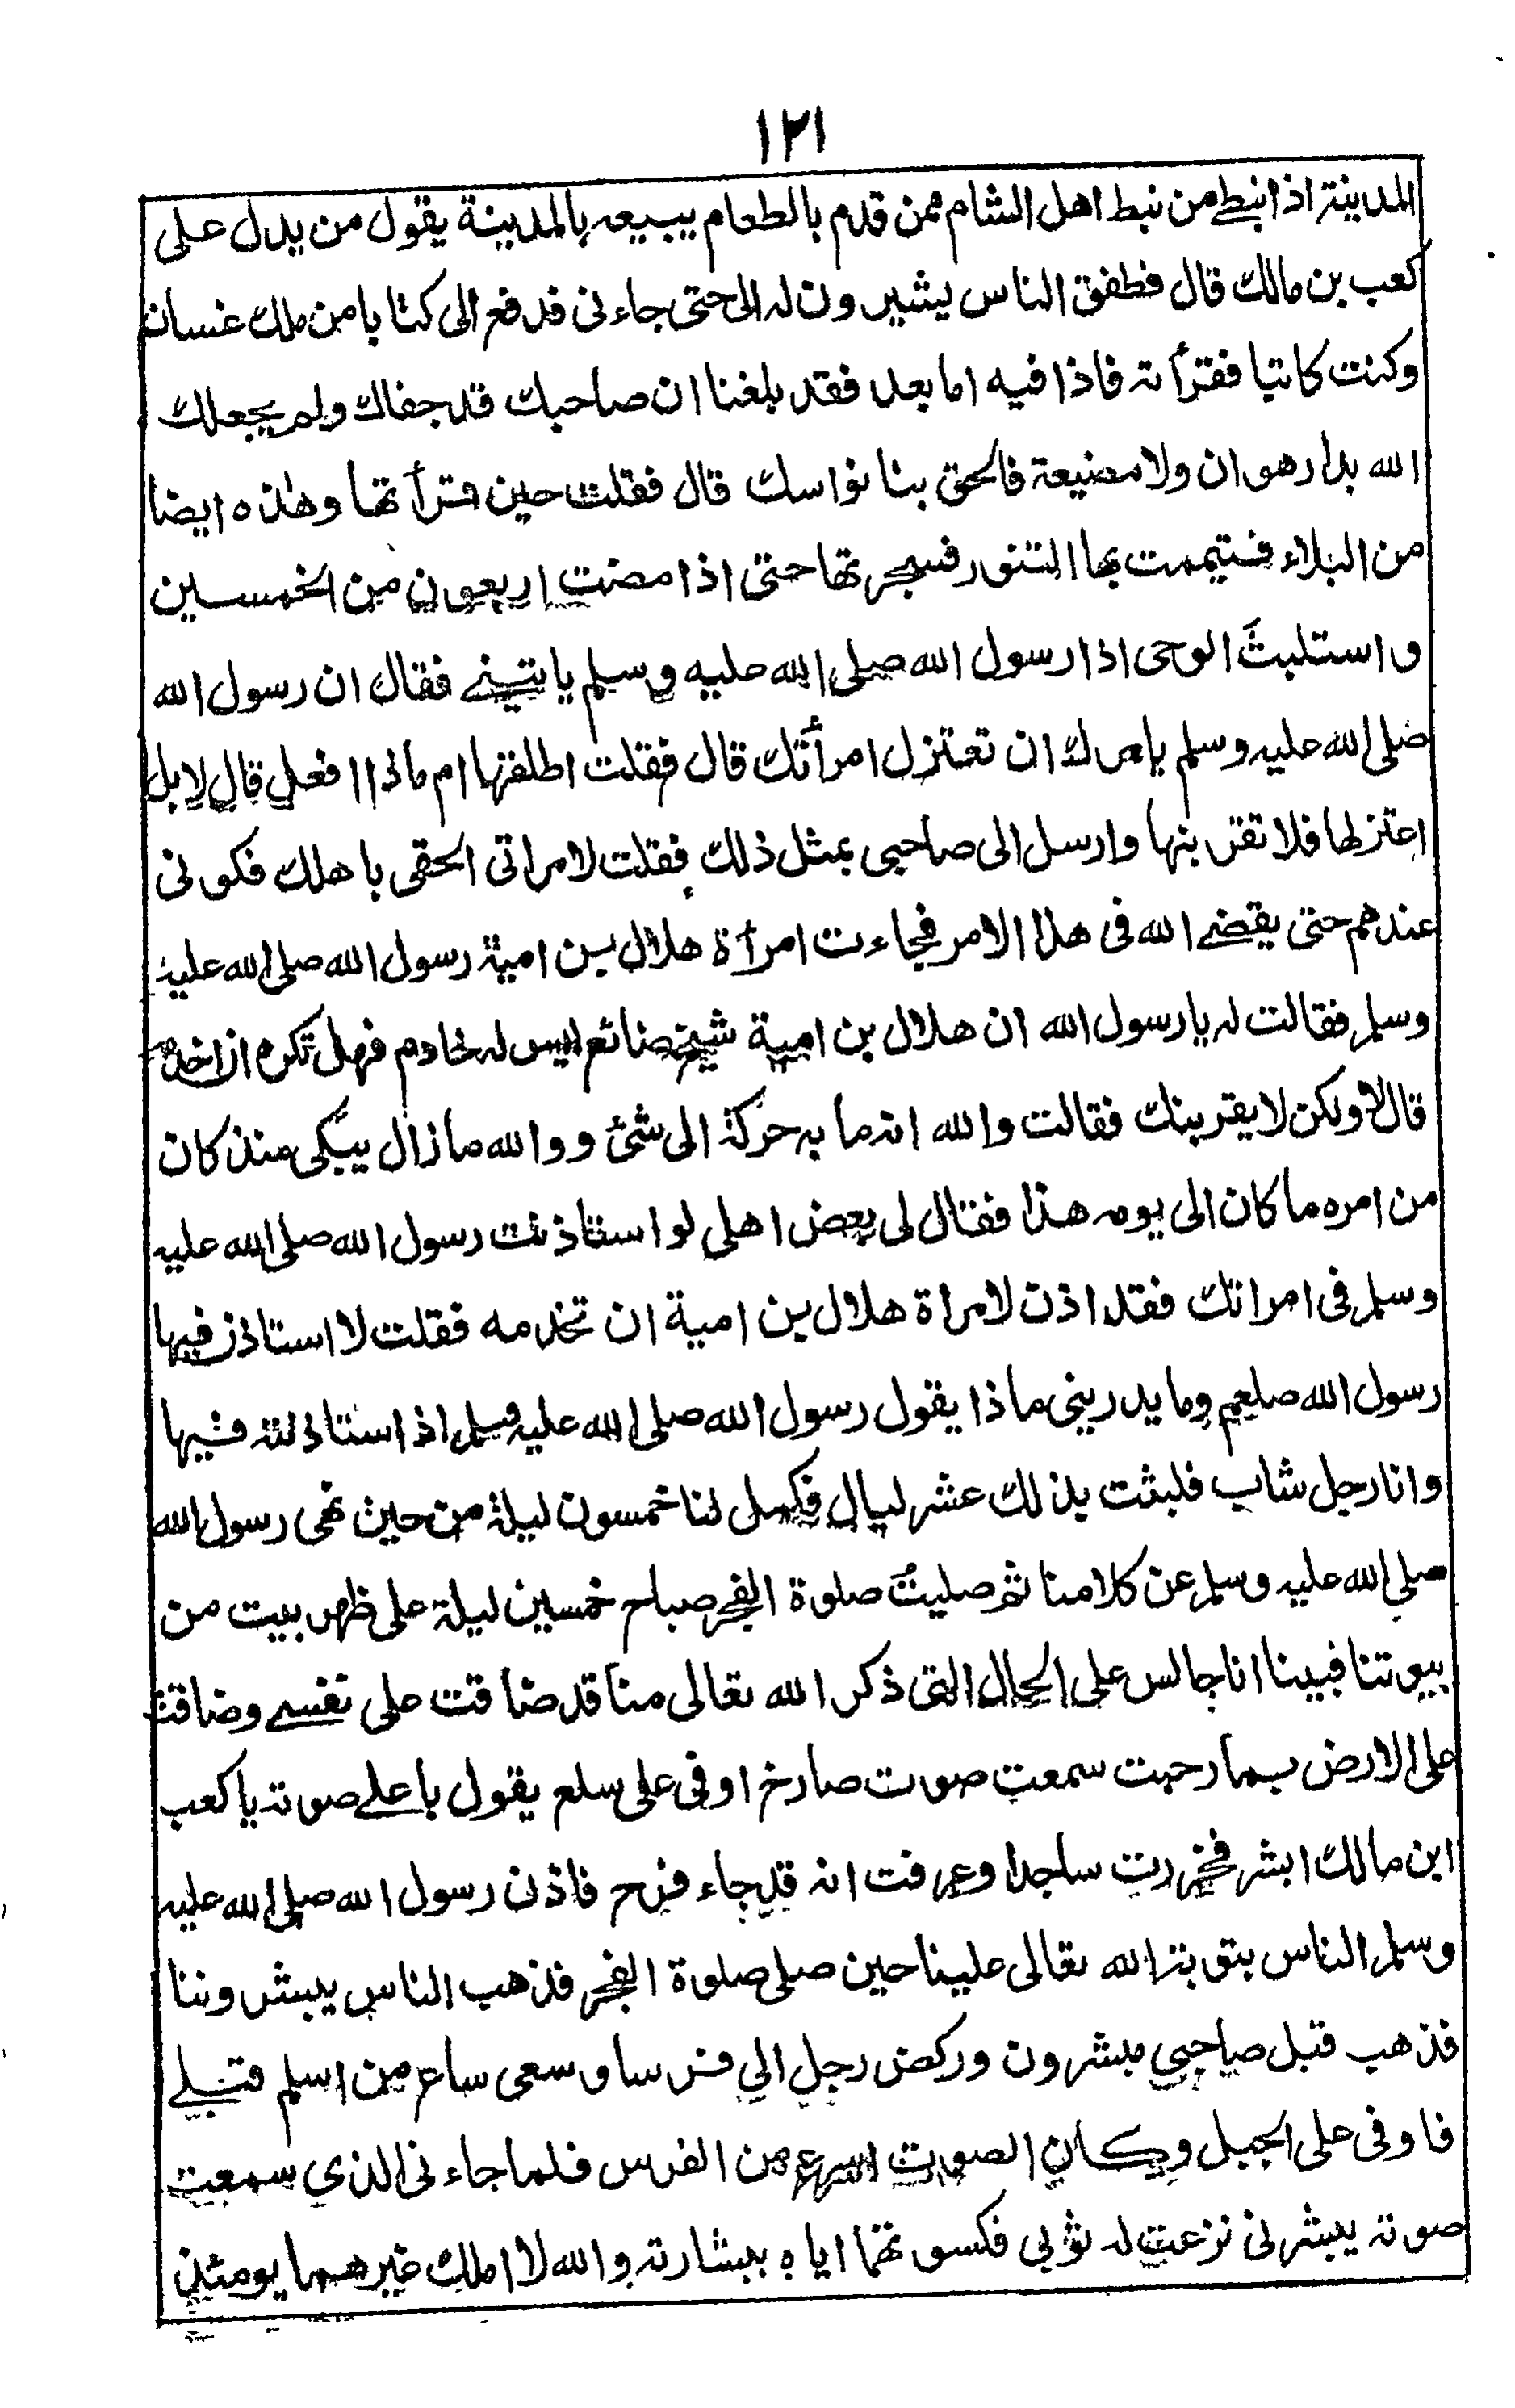 ١٢١
المدينة اذا نبطے من نبط اهل الشام ممن قدم بالطعام يبيعه بالمدينة يقول من يدل على
كعب بن مالك قال فطفق الناس يشيرون له الى حتى جاءنى فدفع الى كتابا من ملك غسان
وكنت كاتبا فقرأته فاذا فيه اما بعد فقد بلغنا ان صاحبك قد جفاك ولم يجعلك
الله بدار هوان ولا مضيعة فالحق بنا نواسك قال فقلت حين قرأتها وهذه ايضا
من البلاء فتيممت بها التنور فسجرتها حتى اذا مضت اربعون من الخمسين
و استلبث الوحى اذا رسول الله صلى الله عليه وسلم ياتينے فقال ان رسول الله
صلى الله عليه وسلم يامرك ان تعتزل امرأتك قال فقلت اطلقها ام ماذا افعل قال لا بل
اعتزلها فلا تقربنها وارسل الى صاحبى بمثل ذلك فقلت لامراتى الحقى باهلك فكونى
عندهم حتى يقضے الله فى هذا الامر فجاءت امرأة هلال بن امية رسول الله صلى الله عليه
وسلم فقالت له يا رسول الله ان هلال بن امية شيخ ضائع ليس له خادم فهل تكره ان اخدمه
قال لا ولكن لا يقربنك فقالت والله انه ما به حركة الى شئ و والله ما زال يبكى منذ كان
من امره ما كان الى يومه هذا فقال لى بعض اهلى لو استاذنت رسول الله صلى الله عليه
وسلم فى امراتك فقد اذن لامراة هلال بن امية ان تخدمه فقلت لا استاذن فيها
رسول الله صلعم وما يدرينى ماذا يقول رسول الله صلى الله عليه وسلم اذا استاذنته فيها
وانا رجل شاب فلبثت بذلك عشر ليال فكمل لنا خمسون ليلة من حين نهى رسول الله
صلى الله عليه وسلم عن كلامنا ثم صليت صلوة الفجر صباح خمسين ليلة على ظهر بيت من
بيوتنا فبينا انا جالس على الحال التى ذكر الله تعالى منا قد ضاقت على نفسے وضاقت
على الارض بما رحبت سمعت صوت صارخ اوفى على سلع يقول باعلے صوته يا كعب
ابن مالك ابشر فخررت ساجدا وعرفت انه قد جاء فرح فاذن رسول الله صلى الله عليه
وسلم الناس بتوبة الله تعالى علينا حين صلى صلوة الفجر فذهب الناس يبشروننا
فذهب قبل صاحبى مبشرون وركض رجل الى فرسا وسعى ساع من اسلم قبلے
فاوفى على الجبل وكان الصوت اسرع من الفرس فلما جاءنى الذى سمعت
صوته يبشرنى نزعت له ثوبى فكسوتهما اياه ببشارته والله لا املك غيرهما يومئذ